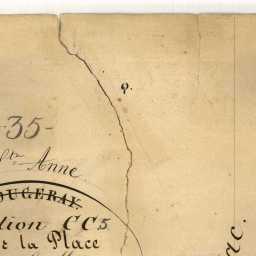 35-
Ste Anne
OUGERAY
tion CC5
e la Place